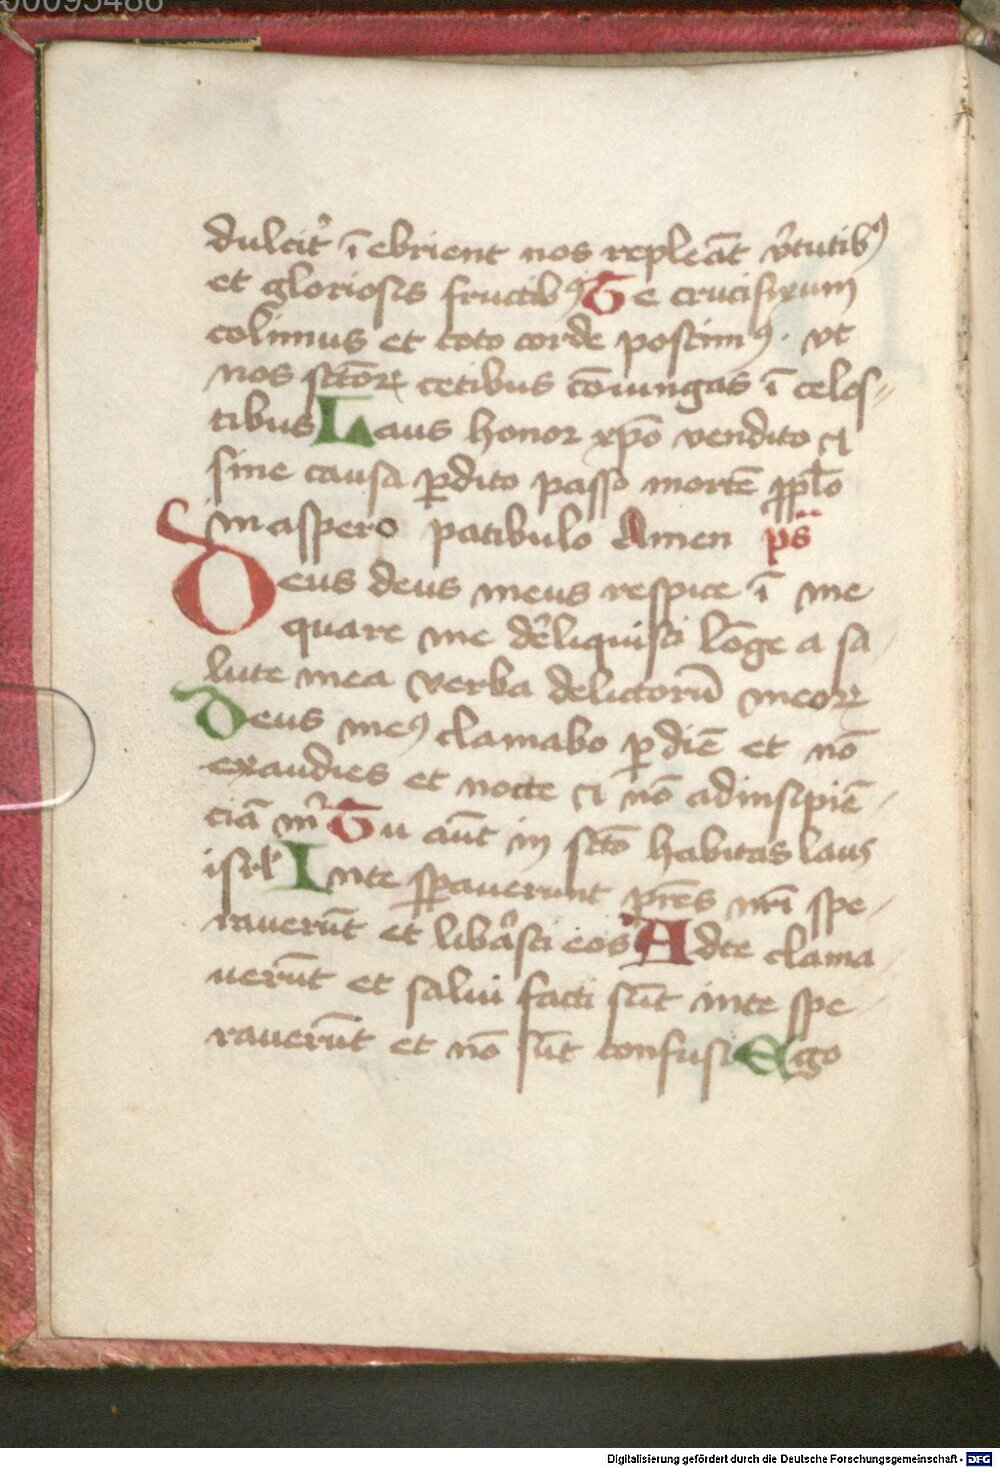 90095486
dulcit᷑ ī ebrient nos repleāt v̾tutibꝰ
et gloriosis fructibꝰ Te crucifixum
colimus et toto corde poscimꝰ · vt
nos sc̄torꝝ cetibus cōiungas ī celes-
tibus Laus honor xp̄o vendito ⁊
sine causa ꝑdito passo mortē ꝓ pp̄lo
in aspero patibulo Amen p̄s
Deus deus meus respice ī me
quare me dereliquisti lōge a sa
lute mea verba delictorū meorꝝ
Deus meꝰ clamabo ꝑ diē et nō
exaudies et nocte ⁊ nō ad insipiē-
ciā m̄ Tu aūt in sc̄to habitas laus
isrl̄ Inte sꝑauerunt pr̄es nr̄i spe-
rauerūt et libasti eos Adte clama
uerūt et salui facti sūt inte spe-
rauerūt et nō sūt confusi Ego
Digitalisierung gefördert durch die Deutsche Forschungsgemeinschaft - DFG